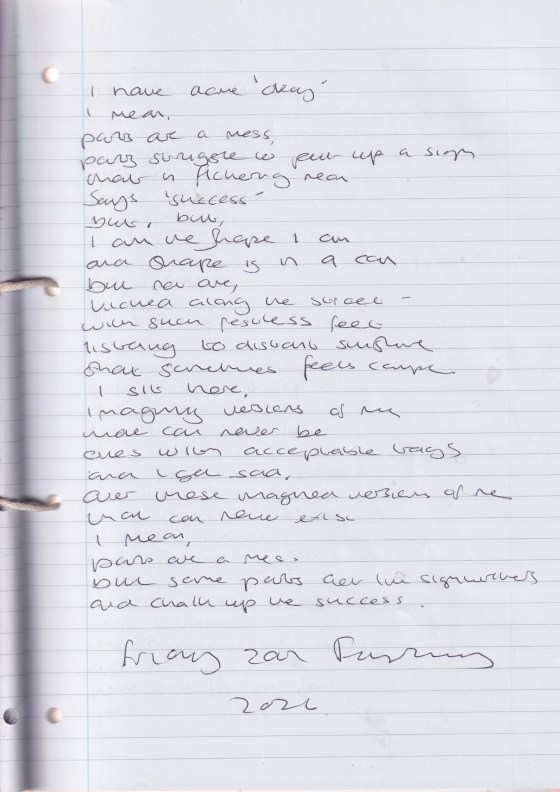 I have done 'okay'
I mean,
parts are a mess,
parts struggle to put up a sign
that in flickering neon
Says 'success'
but, but,
I am the shape I am
and shape is in a can
but not one,
kicked along the street -
with such restless feet
listening to distant
that sometimes feels
I sit here,
imagining versions of me
that can never be
ones with acceptable
and I get sad,
over these imagined versions of me
that can never exist
I mean,
parts are a mess.
but some parts act like signwriters
and chalk up the success.
Friday 2021